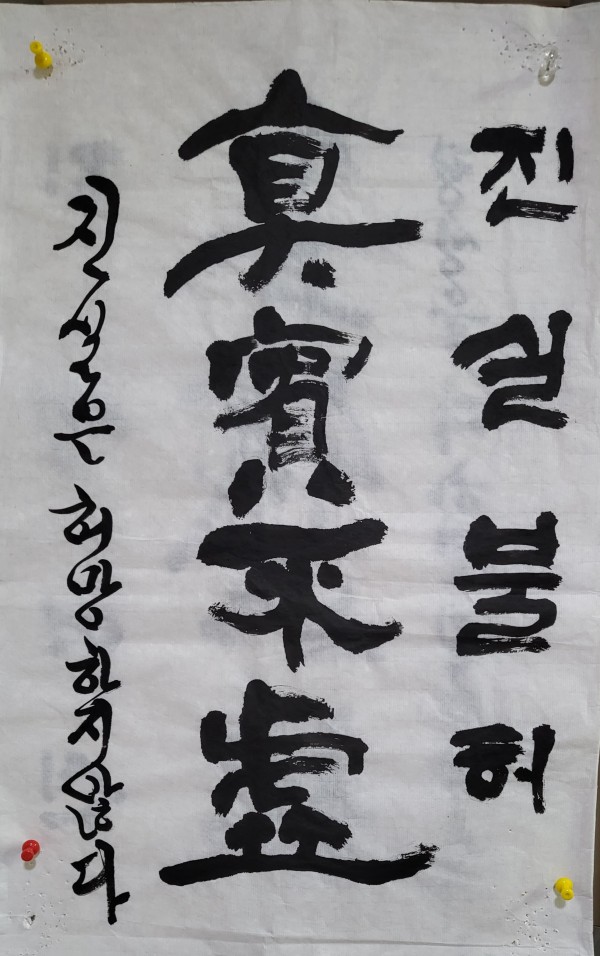 진실불허
眞實不虛
진실은 허망하지 않다